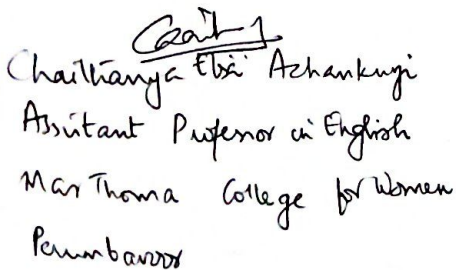 Chaithanya Elsa Azhankuyi
Assistant Professor in English
Mar Thoma College for Women
Perumbavoor